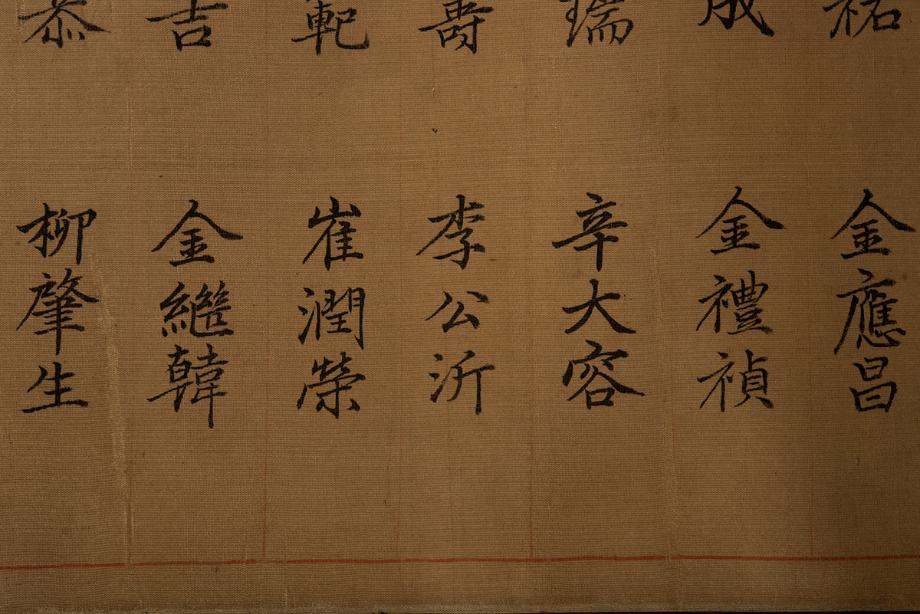 祐
金應昌
成
金禮禎
瑞
辛大容
壽
李公沂
範
崔潤榮
吉
金繼韓
恭
柳肇生